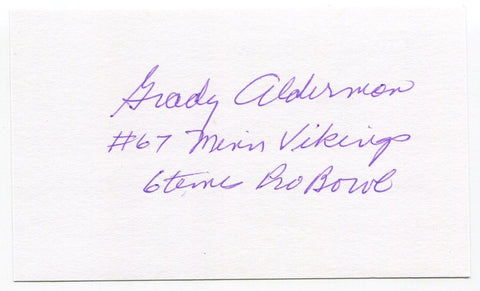 Grady Alderman
#67 Minn Vikings
6 times Pro Bowl